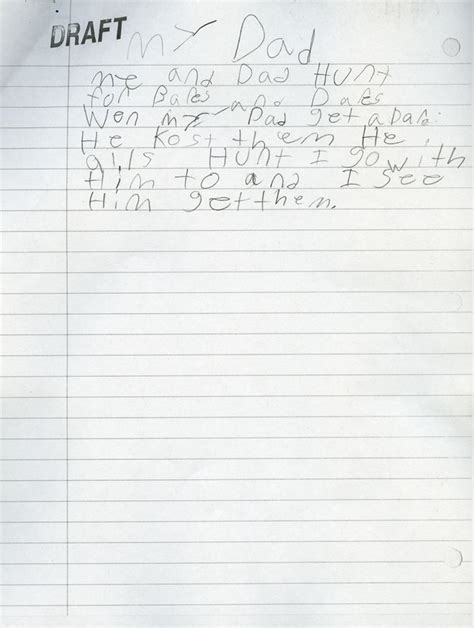 DRAFT
my Dad
me and Dad Hunt
for Bares and Dares
Wen my Dad get a bare.
He Kost them He
gits Hunt I go with
Him to and I see
Him get them.